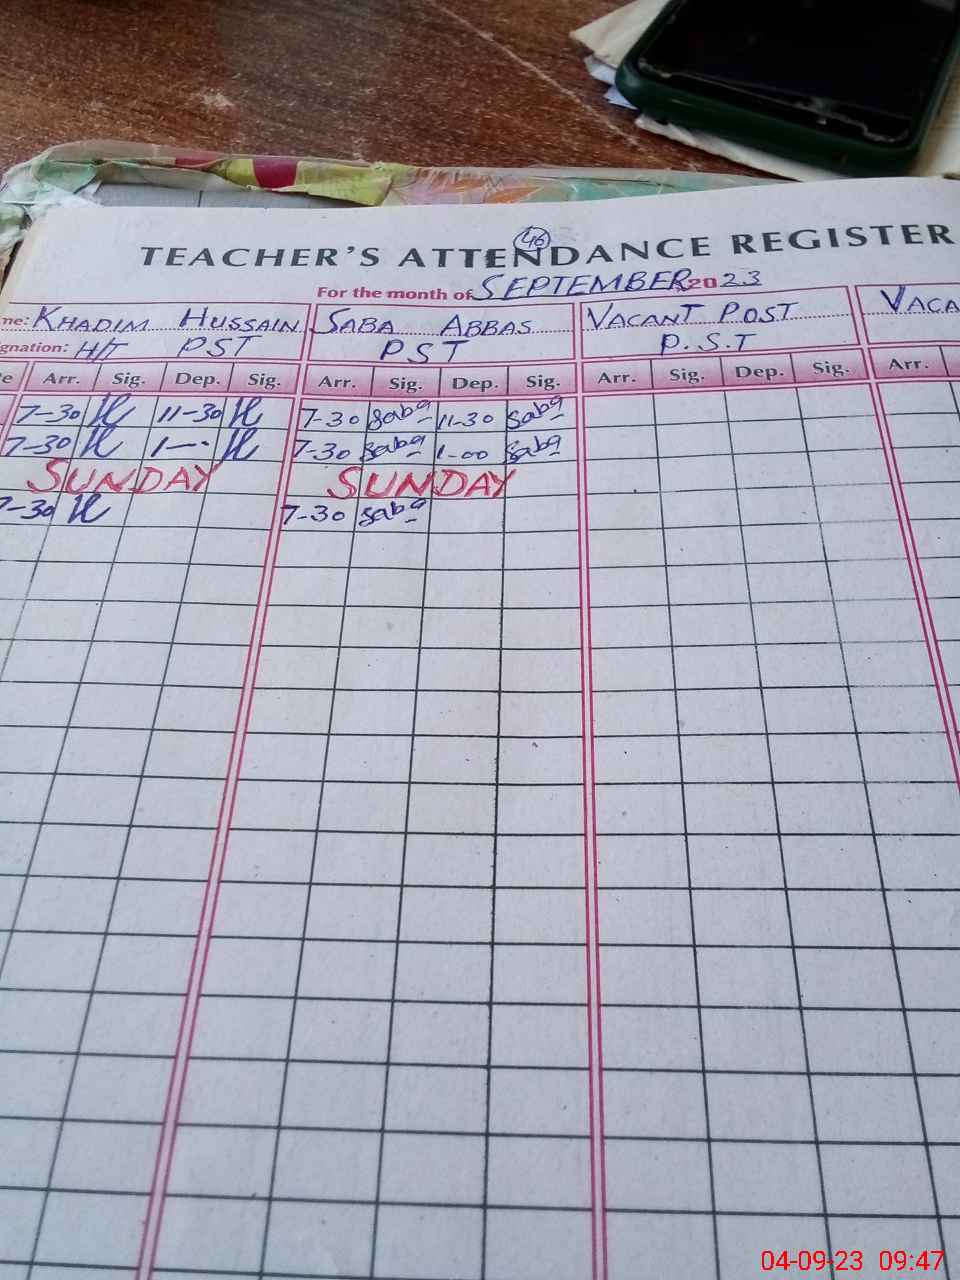 46
TEACHER'S ATTENDANCE REGISTER
For the month of SEPTEMBER 2023
me: KHADIM HUSSAIN SABA ABBAS VACANT POST VACA
gnation: H/T PST PST P.S.T
e Arr. Sig. Dep. Sig. Arr. Sig. Dep. Sig. Arr. Sig. Dep. Sig. Arr.
7-30 11-30 7-30 Saba 11-30 Saba
7-30 1-- 7-30 Saba 1-00 Saba
SUNDAY SUNDAY
7-30 7-30 Saba
04-09-23 09:47